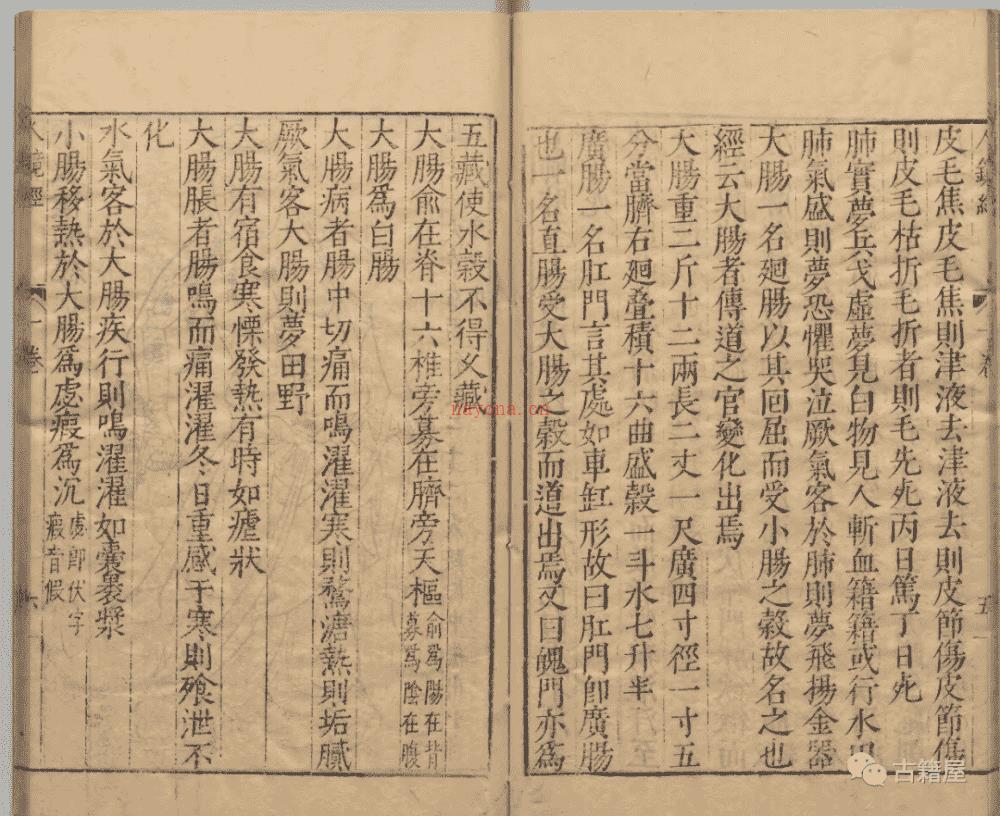 人鏡經 卷 五
皮毛焦皮毛焦則津液去津液去則皮節傷皮節傷
則皮毛枯折毛折者則毛先死丙日篤丁日死
肺實夢兵戈虛夢見白物見人斬血籍籍或行水田
肺氣盛則夢恐懼哭泣厥氣客於肺則夢飛揚金器
大腸一名廻腸以其回屈而受小腸之穀故名之也
經云大腸者傳道之官變化出焉
大腸重二斤十二兩長二丈一尺廣四寸徑一寸五
分當臍右廻叠積十六曲盛穀一斗水七升半
廣腸一名肛門言其處如車缸形故曰肛門卽廣腸
也一名直腸受大腸之穀而道出焉又曰魄門亦爲
五藏使水穀不得乆藏
大腸俞在脊十六椎旁募在臍旁天樞俞爲陽在背募爲陰在腹
大腸爲白腸
大腸病者腸中切痛而鳴濯濯寒則鶩溏熱則垢膩
厥氣客大腸則夢田野
大腸有宿食寒慄發熱有時如瘧狀
大腸脹者腸鳴而痛濯濯冬日重感于寒則飧泄不
化
水氣客於大腸疾行則鳴濯濯如囊裹漿
小腸移熱於大腸爲虙瘕爲沉虙卽伏字瘕音假
人鏡經 一卷
nayona.cn
古籍屋